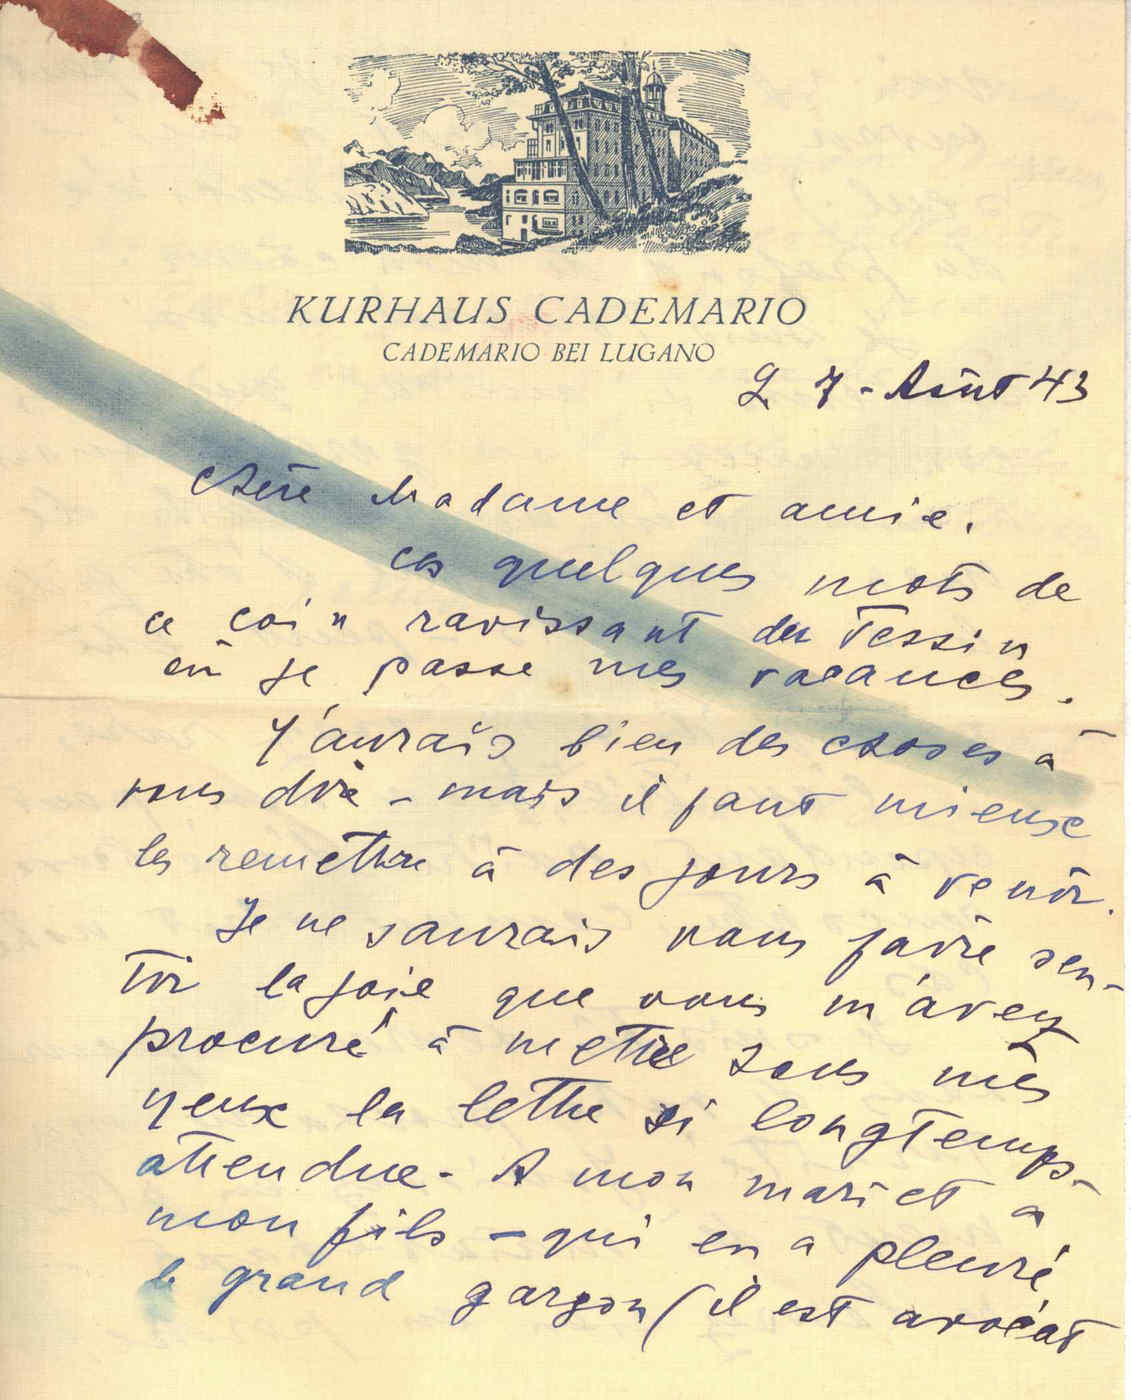 KURHAUS CADEMARIO
CADEMARIO BEI LUGANO
Le 7 - Août 43
Chère Madame et amie.
ces quelques mots de
ce coin ravissant du Tessin
où je passe mes vacances.
J'aurais bien des choses à
vous dire - mais il faut mieux
les remettre à des jours à venir.
Je ne saurais vous faire sen-
tir la joie que vous m'avez
procuré à mettre sous mes
yeux la lettre si longtemps-
attendue - A mon mari et à
mon fils - qui en a pleuré
le grand garçon (il est avocat